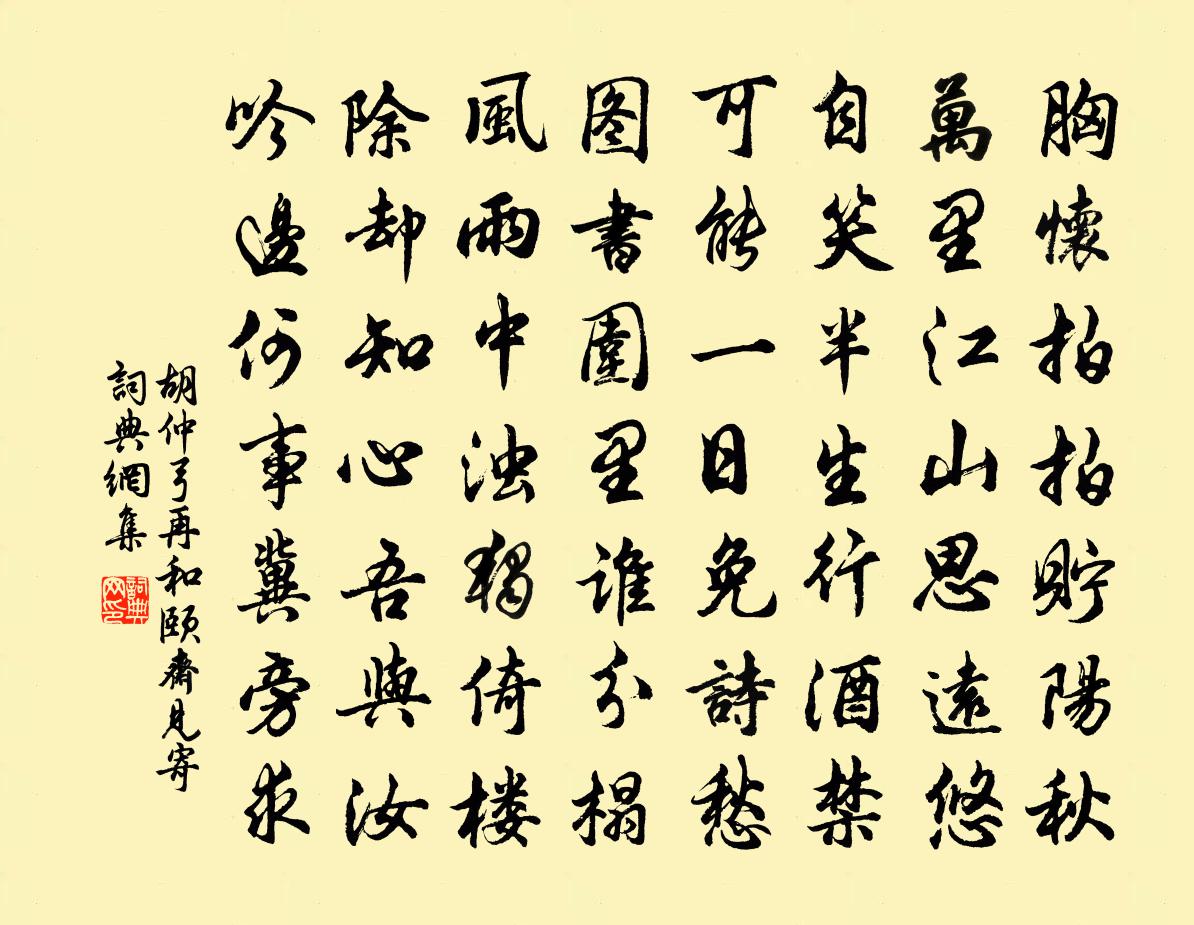 胸懷拍拍貯陽秋
萬里江山思遠悠
自笑半生行酒禁
可能一日免詩愁
图書圍里誰分榻
風雨中浊獨倚楼
除却知心吾與汝
吟邊何事冀旁求
胡仲弓再和頤齋見寄
詞典網集
詞典
网印